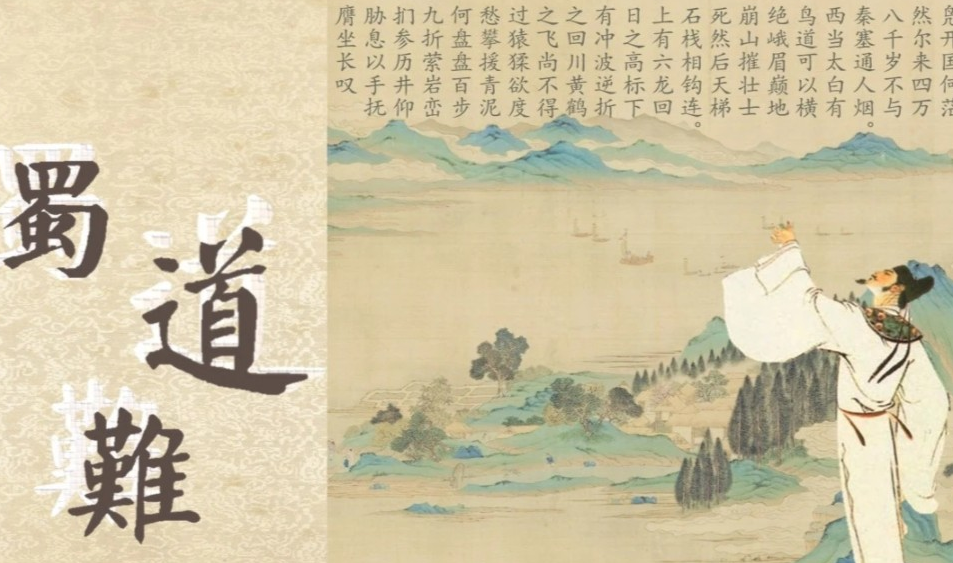 蜀
道
難
凫开国何茫
然尔来四万
八千岁不与
秦塞通人烟。
西当太白有
鸟道可以横
绝峨眉巅地
崩山摧壮士
死然后天梯
石栈相钩连。
上有六龙回
日之高标下
有冲波逆折
之回川黄鹤
之飞尚不得
过猿猱欲度
愁攀援青泥
何盘盘百步
九折萦岩峦
扪参历井仰
胁息以手抚
膺坐长叹